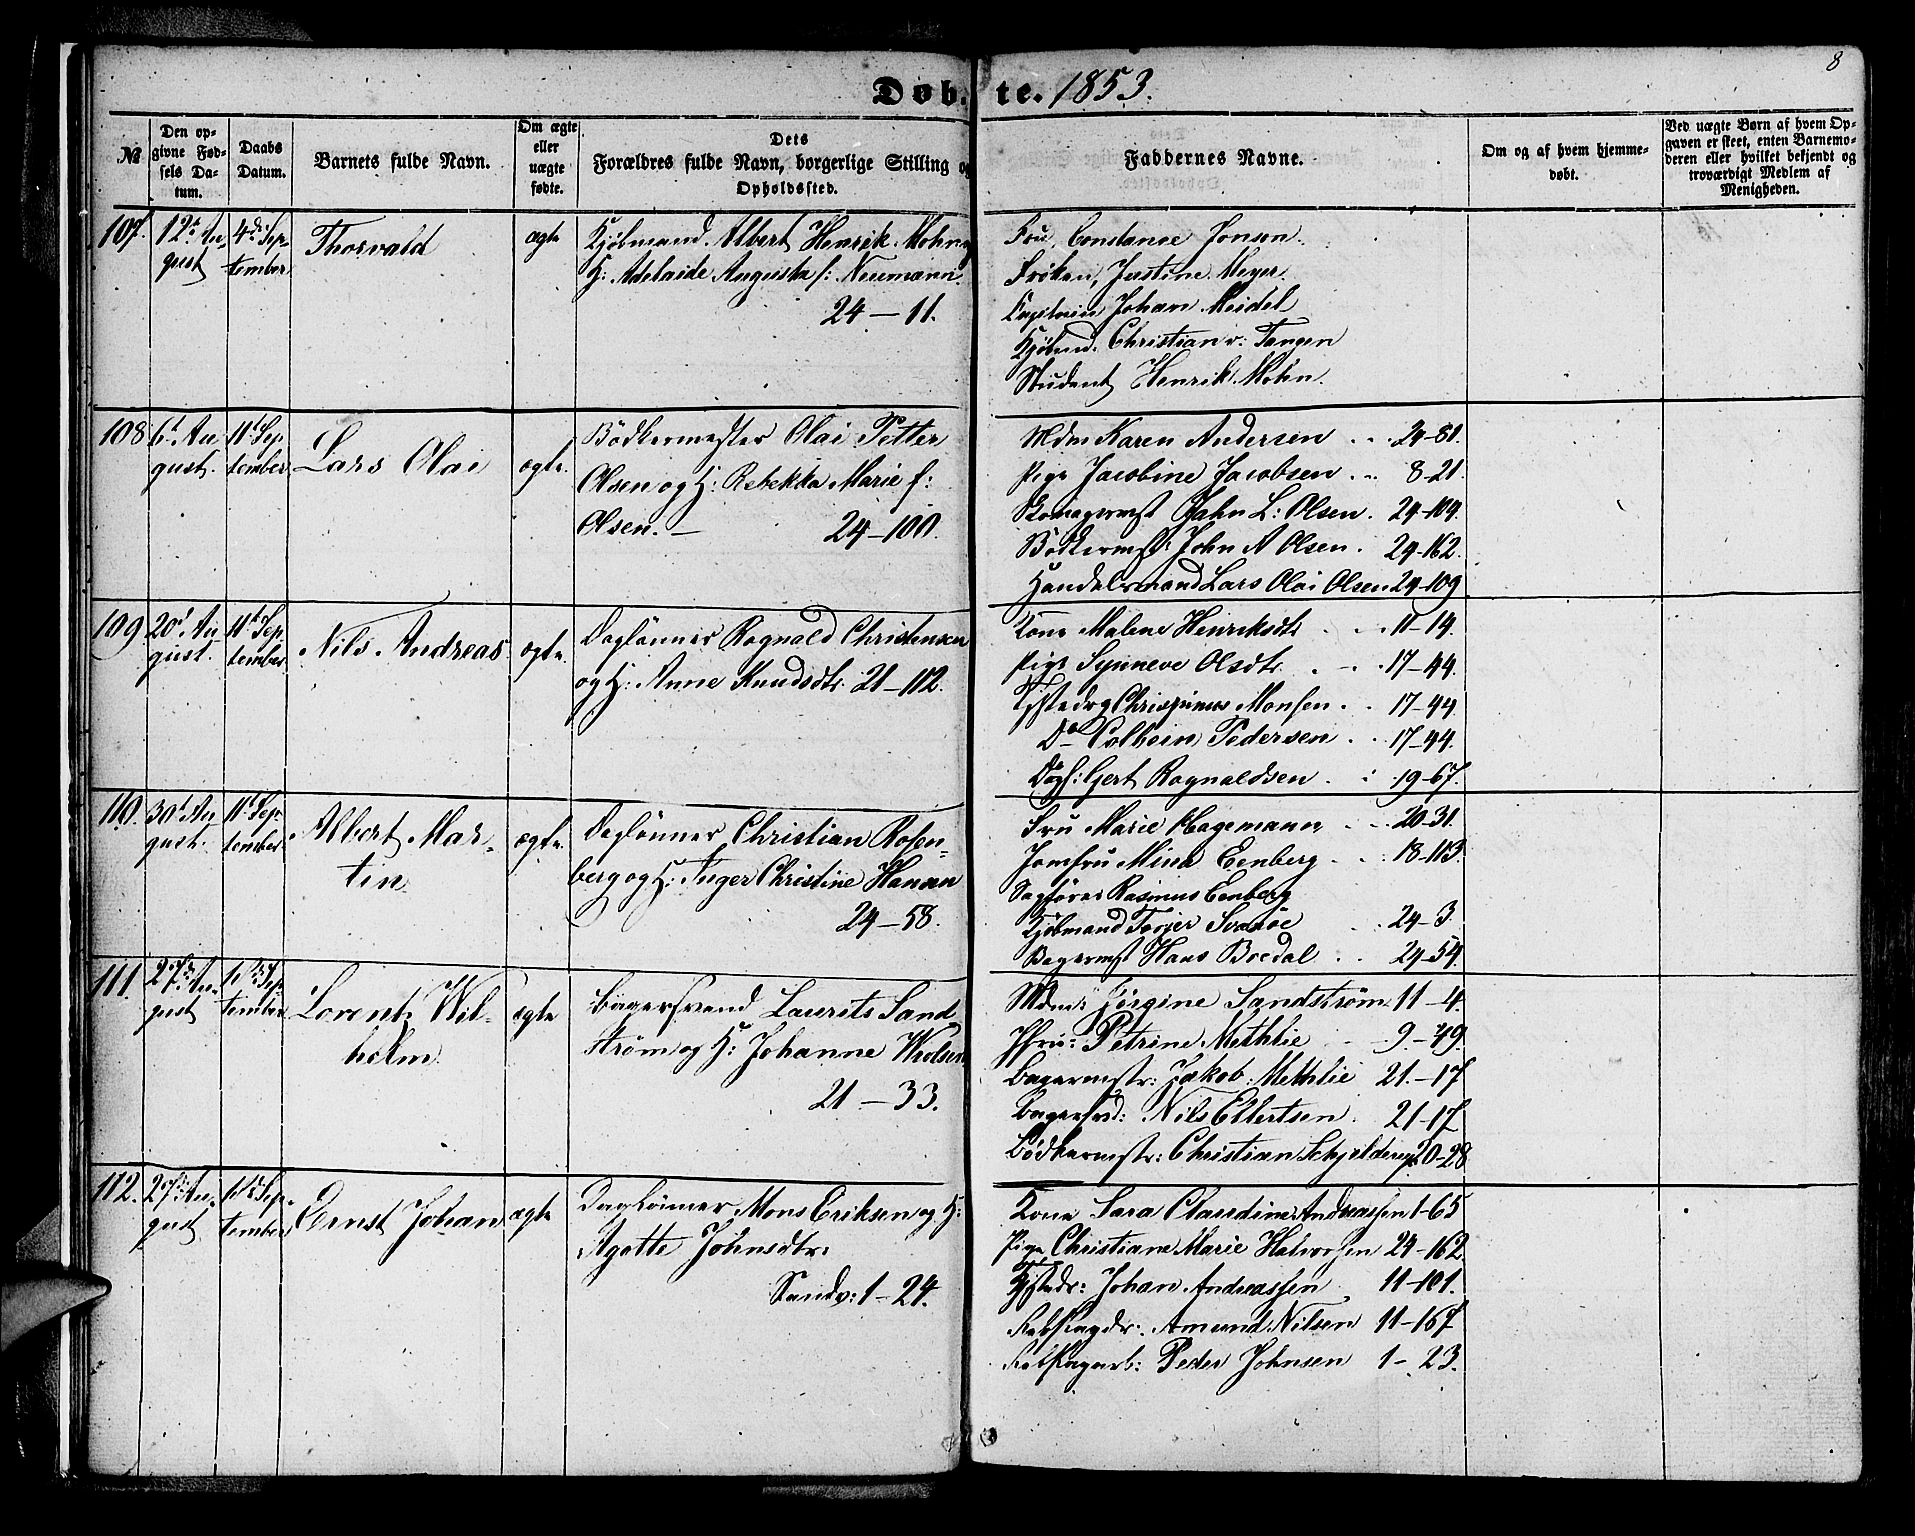 8
Døbte. 1853.
№
Den op-
givne Fød-
sels Da-
tum.
Daabs
Datum.
Barnets fulde Navn.
Om ægte
eller
uægte
fødte.
Dets
Forældres fulde Navn, borgerlige Stilling og
Opholdssted.
Faddernes Navne.
Om og af hvem hjemme-
døbt.
Ved uægte Børn af hvem Op-
gaven er skeet, enten Barnemo-
deren eller hvilket bekjendt og
troværdigt Medlem af
Menigheden.
107.
12te Au
gust
4de Sep
tember
Thorvald
ægte
Kjøbmand Albert Henrik Mohn og
H: Adelaide Augusta f: Neumann.
24-11.
Fru, Constance Jonson.
Frøken, Justine Meyer.
Capitain Johan Meidel
Kjøbmd: Christian v: Tangen
Student Henrik Mohn.
108
6t Au
gust.
11t Sep
tember
Lars Olai
ægte.
Bødkermester Olai Petter
Olsen og H: Rebekka Marie f:
Olsen.- 24-100.
Mdm Karen Andersen 24-81.
Pige Jacobine Jacobsen 8-21.
Skomagermst Jahn L: Olsen. 24-109.
Bødkermst: John A Olsen. 24-162.
Handelsmand Lars Olai Olsen 24-109
109
20t Au
gust.
11t Sep
tember
Nils Andreas
ægte.
Daglønner Rognald Christensen
og H: Anne Knudsdtr 21-112.
Kone Malene Henriksdtr 11-14.
Pige Synneve Olsdtr. 17-44.
Chrispinus Monsen 17-44
Do Colbein Pedersen 17-44.
Dagl: Gjert Rognaldsen 19-67.
110.
30t Au
gust.
11t Sep
tember
Albert Mar-
tin.
ægte.
Daglønner Christian Rosen-
berg og H: Inger Christine Hansen
24-58.
Fru Marie Hagemann 20-31.
Jomfru Mina Eenberg 18-113.
Sagfører Rasmus Eenberg
Kjøbmand Torjer Svanøe 24-3.
Bagermst Hans Boedal 24-54.
111.
27de Au-
gust
11te Sep
tember
Lorentz Wil-
helm.
ægte
Bagersvend Laurits Sand
strøm og H: Johanne Wrolsen
21-33.
Mdm: Jørgine Sandstrøm 11-4.
Jfru: Petrine Methlie 9.-49.
Bagermstr: Jakob Methlie 21.-17
Bagersvd: Nils Ellertsen. 21-17
Bødkermstr: Christian Schjelderup 20-28
112.
27de Au-
gust
11te Sep-
tember
Ernst Johan
ægte
Daglønner Mons Eriksen og H:
Agotte Johnsdtr:
Sandv: 1-24.
Kone Sara Claudine Andreassen 1-65
Pige Christiane Marie Halvorsen 24-162
Johan Andreassen 11-101.
Amund Nilsen 11-167
Peder Johnsen 1-23.